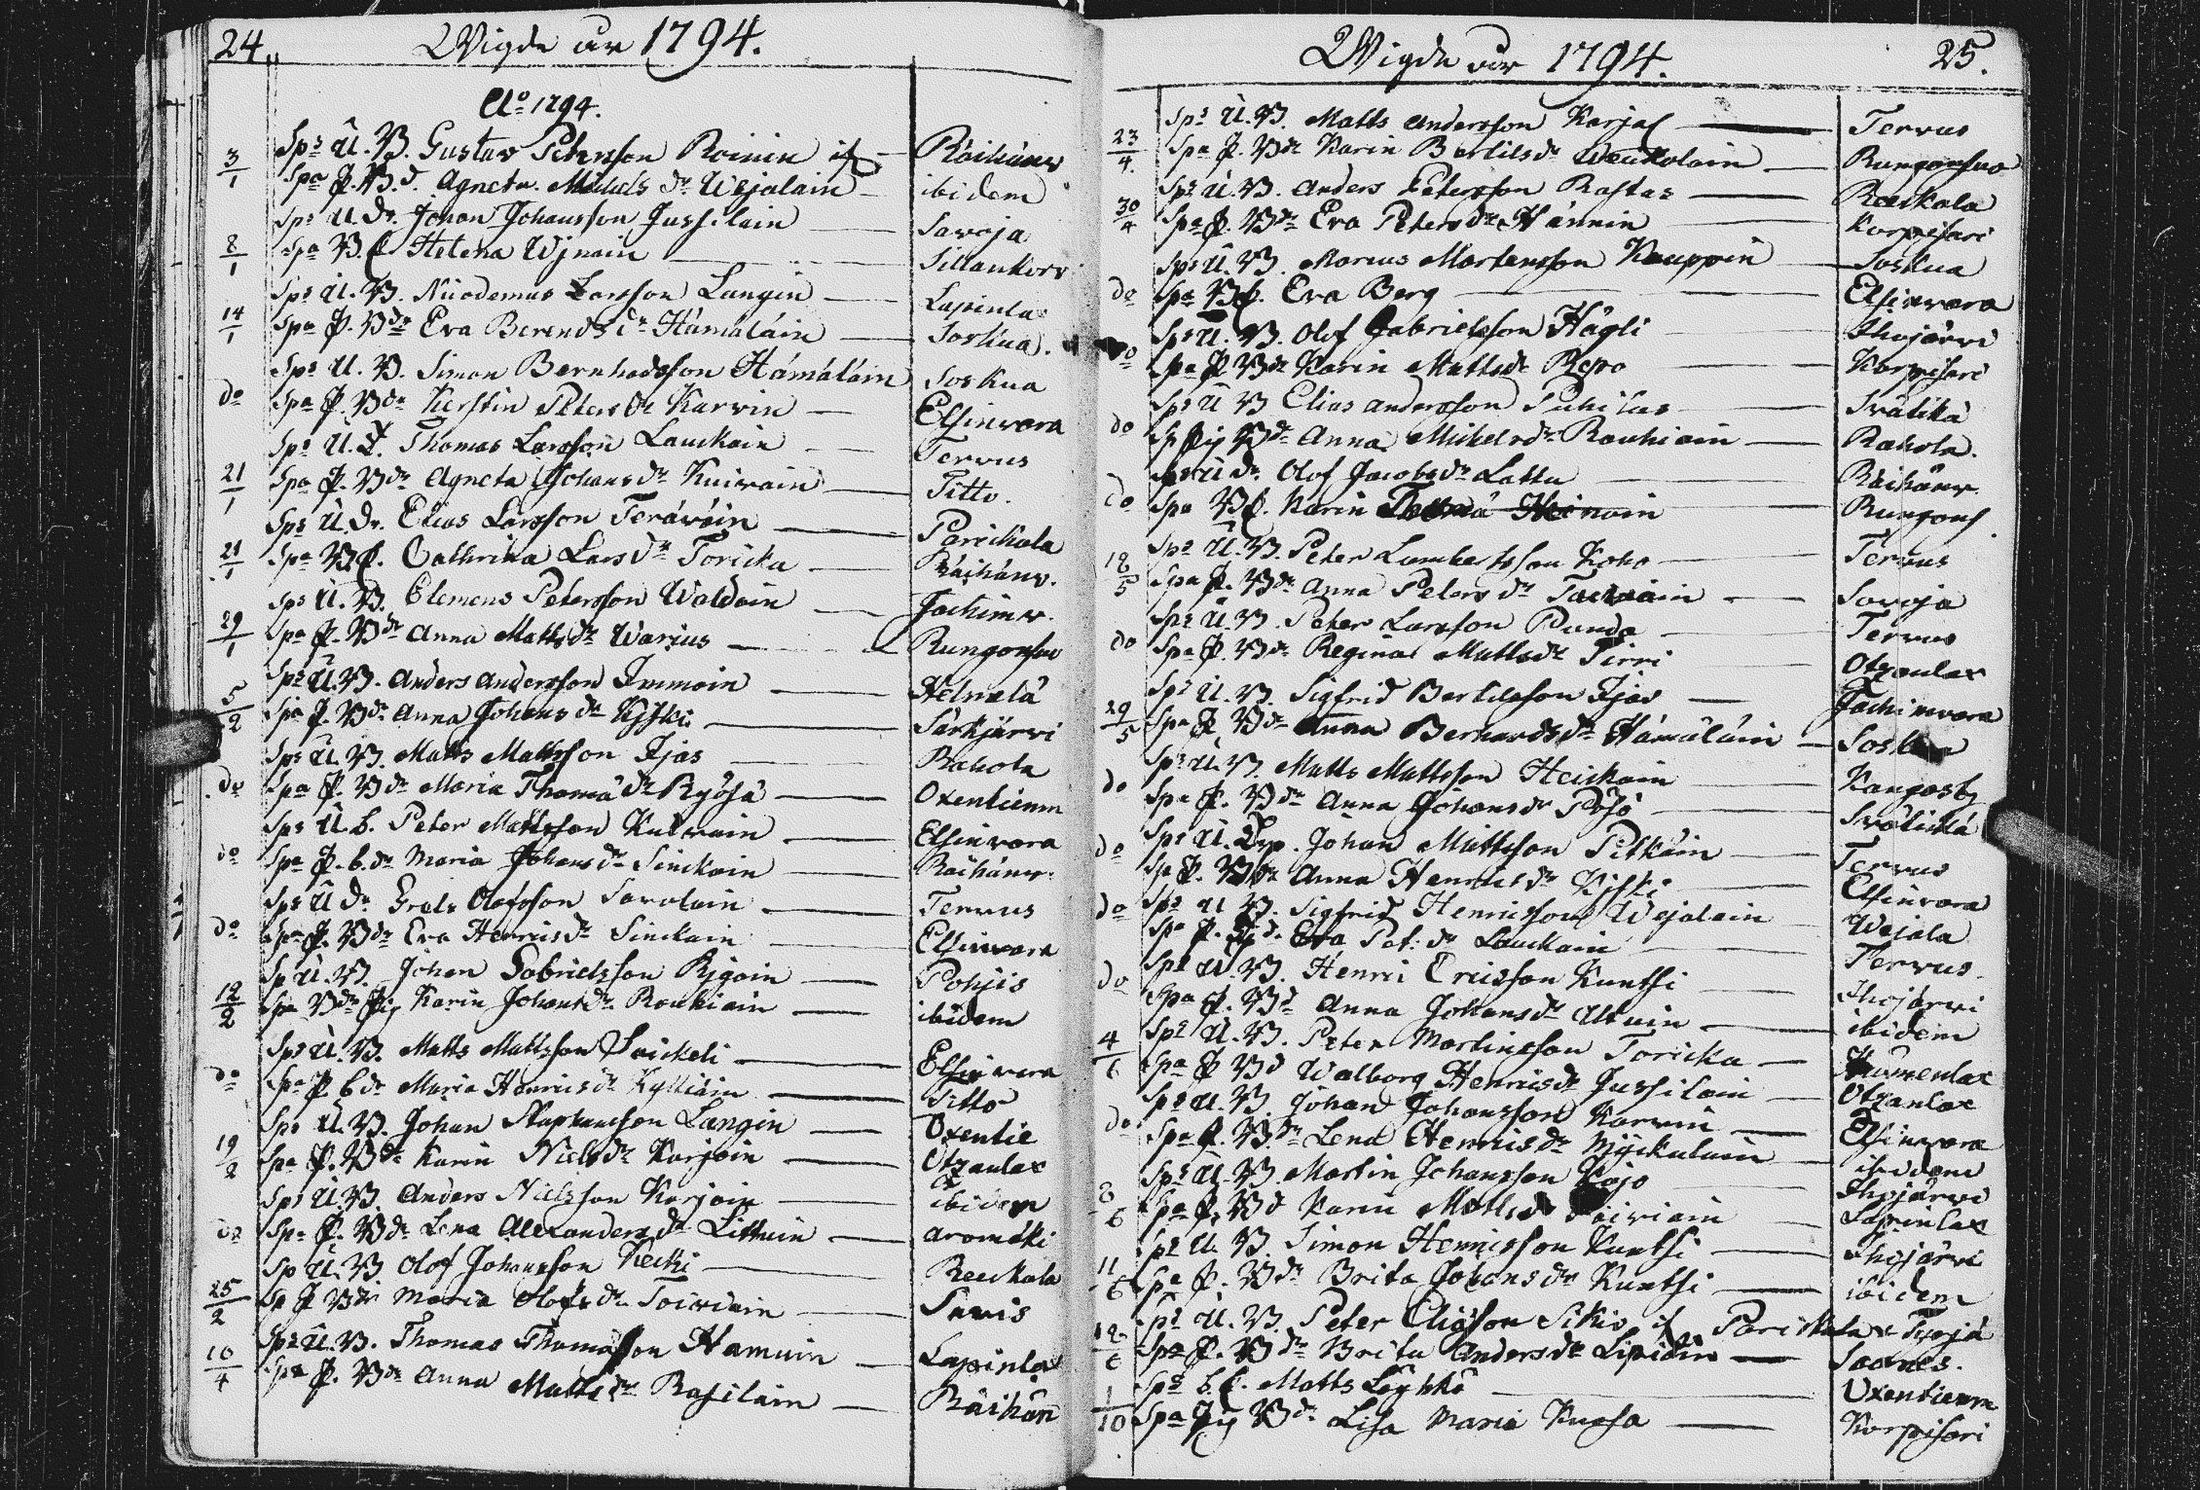 24. Wigde år 1794.
Ao 1794.
3/1 Sps U.B. Gustav Petersson Roinin — Räihänw
Spa P.B.d. Agneta Mickels dr Wejalain — ibidem
8/1 Sps U. Dr. Johan Johansson Jussilain — Savoja
Spa B. E Helena Wjnain — Sillankorv
14/1 Sps U. B. Nicodemus Larsson Langin — Lapinlax
Spa P. Bdr Eva Berends dr Hämäläin — Soskua.
do Sps U. B. Simon Bernhadsson Hämäläin Soskua
Spa P. Bdr Kerstin Peters dr Karvin — Elsinvara
21/1 Sps U. Thomas Larsson Lauckain — Tervus
Spa P. Bdr Agneta Johans dr Kuivain — Titto.
21/1 Sps U. Dr. Elias Larsson Teräväin — Parickala
Spa B. Cathrina Lars dr Toricka — Räihänv.
29/1 Sps U. B. Clemens Petersson Waldain — Jachimv.
Spa P. Bdr Anna Matts dr Warjus — Rungonsuo
5/2 Sps U. B. Anders Andersson Immoin — Helmelä
Spa P. Bdr Anna Johans dr Kyski — Särkjärvi
do Sps U. B. Matts Mattsson Ijas — Rahola
Spa P. Bdr Maria Thomä dr Ryösä — Oxentiemm
do Sps U. b. Peter Mattsson Kuivain — Elsinvara
Spa P. b. dr Maria Johans dr Sinckain — Räihänv.
do Sps U Dr Grels Olofsson Savolain — Tervus
Spa P. Bdr Eva Henrics dr Sinckain — Elsinvara
12/2 Sp U. B. Johan Gabrielsson Rjgain — Pohjis
Spa Bdr Pig Karin Johans dr Rouhiain — ibidem
do Sps U. B. Matts Mattsson — Elsinvara
Spa P. bdr Maria Henrics dr Kylliäin — Titto
19/2 Sps U. B. Johan Staphansson Langin — Oxentie
Spa P. Bdr Karin Niels dr Karjain — Otzanlax
do Sps U. B. Anders Nielsson Karjain — ibidem
Spa P. Bdr Lena Alexanders dr Littuin — Aromäki
25/2 Sp U. B Olof Johansson Kecki — Reeckala
Sp P Bdr Maria Olofs dr Toivain — Savis
10/4 Sps U. B. Thomas Thomasson Hamuin — Lapinlax
Spa P. Bdr Anna Matts dr Rasilain — Räihän
Wigde år 1794. 25.
23/4 Sps U. B. Matts Andersson Karja — Tervus
Spa P. Bdr Karin Bertils dr — Rungonsuo
30/4 Sps U. B. Anders Petersson Rastas — Reeskala
Spa P. Bdr Eva Peters dr Hännin — Korpisari
do Sps U. B. Marcus Martensson Kauppin — Soskua
Spa B. Eva Berg — Elsinvara
do Sps U. B. Olof Gabrielsson Hägli — Ihojärvi
Spa P Bdr Karin Mattsdr Repo — Korpisari
do Sps U B Elias Andersson Puhilas — Svätikä
Sp Pig Bdr Anna Mikels dr Rouhiain — Rahola.
do Sps U dr Olof Jacobs dr Lattu — Räihänv
Spa B. Karin — Rungons.
18/5 Sps U. B. Peter Lambertsson Koho — Tervus
Spa P. Bdr Anna Peters dr — Savoja
do Sps U. B. Peter Larsson Punda — Tervus
Spa P. Bdr Regina Mattsdr Pirri — Otzanlax
29/5 Sps U. B. Sigfrid Bertilsson Ijas — Jachimvara
Spa P. Bdr Anna Bernhards dr Hämäläin — Soskua
do Sps U. B. Matts Mattsson Heickain — Kangasby
Spa P. Bdr Anna Johans dr Pösö — Svätikkä
do Sps U. Johan Mattsson Pitkäin — Tervus
Spa P. Bdr Anna Henricsdr Kyski — Elsinvara
do Sps U B. Sigfrid Henricsson Wejalain — Wejala
Spa P. d. Eva Pet: dr Lauckain — Tervus
do Sps U. B. Henric Ericsson Kuntsi — Ihojärvi
Spa P. Bd Anna Johans dr Altuin — ibidem
4/6 Sps U. B. Peter Martinsson Toricka — Kumenlax
Spa P Bd Walborg Henrics dr Jussilain — Otzanlax
do Sps U. B. Johan Johansson Karvin — Elsinvara
Spa P. Bdr Lena Henrics dr Myckulain — ibidem
8/6 Sps U. B Martin Johansson Kojo — Ihojärvi
Spa P. Bd Karin Matts dr — Lapinlax
11/6 Sps U. B. Simon Henricsson Kuntsi — Ihojärvi
Spa P. Bdr Brita Johans dr Kuntsi — ibidem
12/6 Sps U. B. Peter Eliasson Sikiö if Parickala
Spa P. Bdr Brita Anders dr Lipiäin — Soanes.
1/10 Sps b. Matts Löykkö — Oxentiemm
Spa Pig Bdr Lisa Maria Kuosa — Korpisari